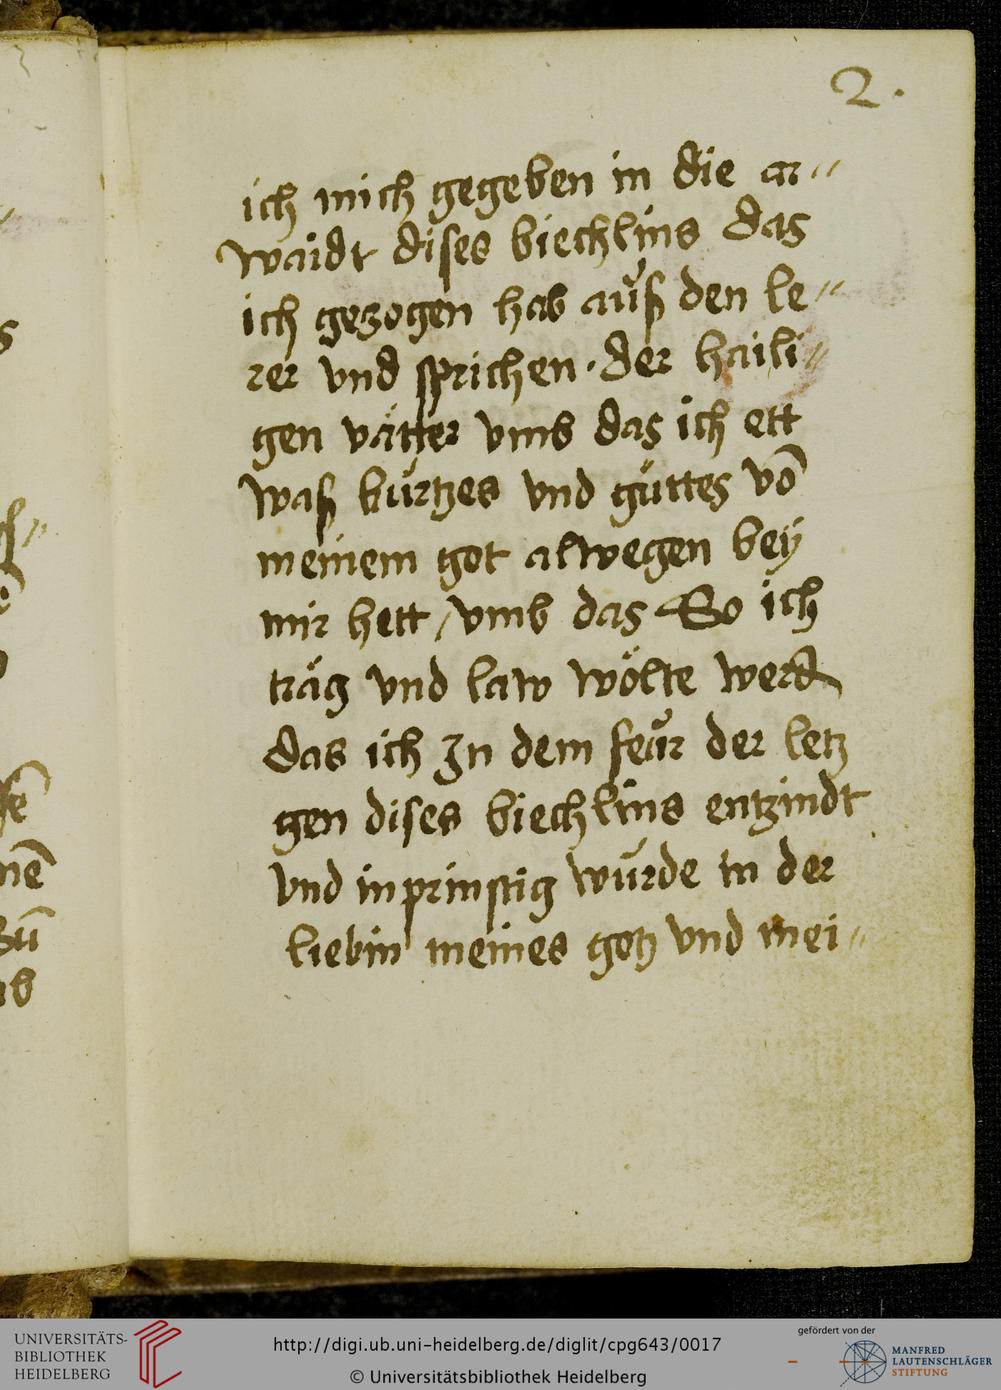 2.
ich mich gegeben in die ar„
waidt dises biechlins das
ich gezogen hab auß den le„
rer vnd sprichen · der haili„
gen vätter vmb das ich ett
waß kürtzes vnd güttes võ
meinem got alwegen bey
mir hett / vmb das So ich
träg vnd law wölte werd
das ich Jn dem feür der letz
gen dises biechlins entzindt
vnd inprinstig würde in der
liebin meines gotz vnd mei„
UNIVERSITÄTS-
BIBLIOTHEK
HEIDELBERG
http://digi.ub.uni-heidelberg.de/diglit/cpg643/0017
© Universitätsbibliothek Heidelberg
gefördert von der
MANFRED
LAUTENSCHLÄGER
STIFTUNG